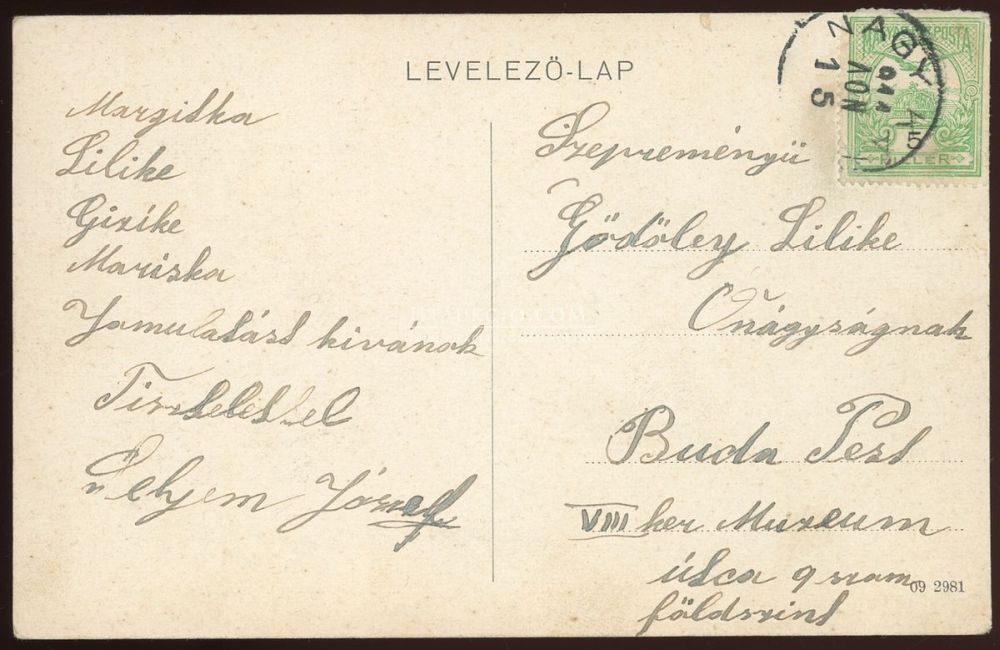 LEVELEZŐ-LAP
Margitka
Lilike
Gizike
Mariska
Jomulatást kivánok
Tisztelettel
József
Szepreményü
Gödöley Lilike
Őnágyságnak
Buda Pest
VIII ker Muzeum
útca 9 szam
földszint
09 2981
NAGY
911
NOV
15
POSTA